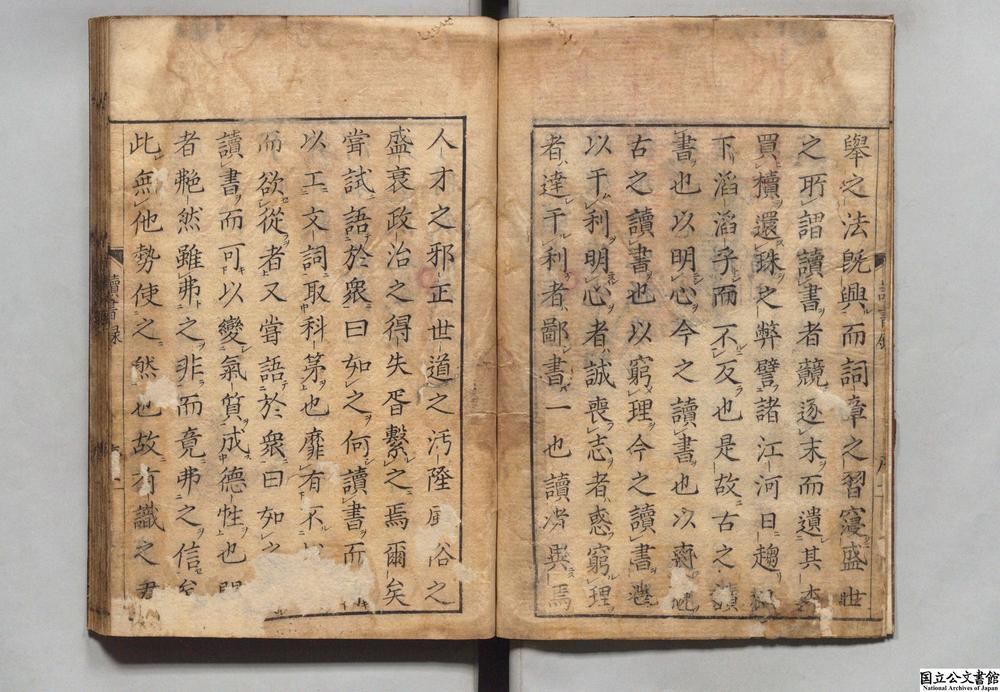 舉之法旣興而詞章之習寖盛世
之所謂讀書者競逐末而遺其本
買櫝還珠之弊譬諸江河日趨
下滔滔乎而不反也是故古之讀
書也以明心今之讀書也以
古之讀書也以窮理今之讀書
以干利明心者誠喪志者惑窮理
者達干利者鄙書一也讀者異焉
人才之邪正世道之汚隆風俗之
盛衰政治之得失胥繫之焉爾矣
嘗試語於衆曰如之何讀書而
以工文詞取科第也靡有不
而欲從者又嘗語於衆曰如之
讀書而可以變氣質成德性也
者艴然雖弗之非而竟弗之信矣
此無他勢使之然也故有識之君
讀書録
国立公文書館
National Archives of Japan